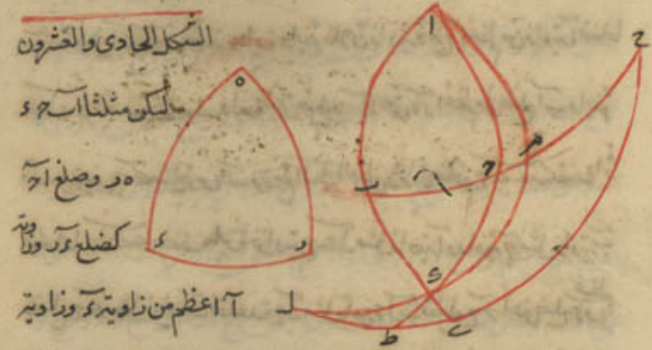 الشكل الحادى والعشرون
ليكن مثلثا ا ب ح ء
ه ر وضلع ا ح
كضلع ء ر وزاوية
آ اعظم من زاوية ء وزاوية
ا
ح
ه
م
ح
ب
ء
ر
ى
ل
ط